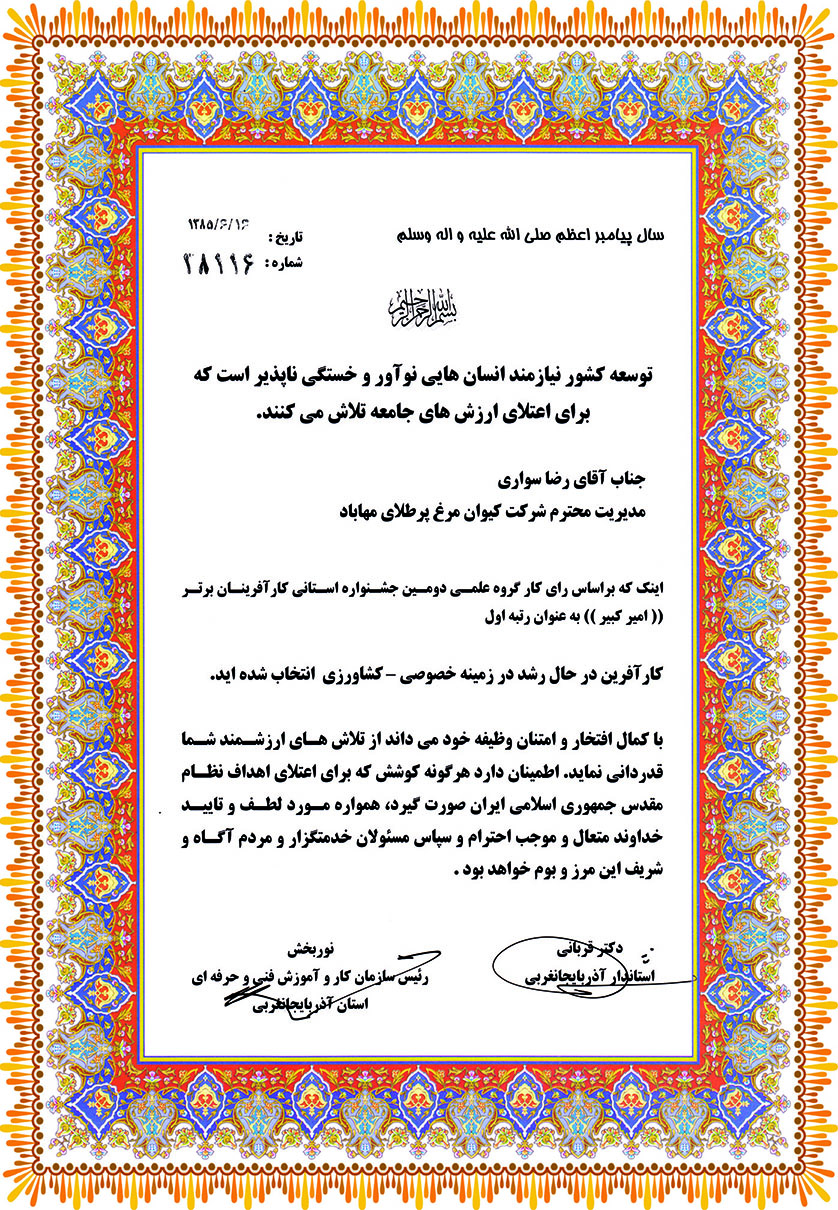 سال پیامبر اعظم صلی الله علیه و اله وسلم
تاریخ : ۱۳۸۵/۶/۱۶
شماره : ۳۸۱۱۶
بسم الله الرحمن الرحیم
توسعه کشور نیازمند انسان هایی نوآور و خستگی ناپذیر است که
برای اعتلای ارزش های جامعه تلاش می کنند.
جناب آقای رضا سواری
مدیریت محترم شرکت کیوان مرغ پرطلای مهاباد
اینک که براساس رای کار گروه علمی دومین جشنواره استانی کارآفرینان برتر
(( امیر کبیر )) به عنوان رتبه اول
کارآفرین در حال رشد در زمینه خصوصی – کشاورزی انتخاب شده اید.
با کمال افتخار و امتنان وظیفه خود می داند از تلاش های ارزشمند شما
قدردانی نماید. اطمینان دارد هرگونه کوشش که برای اعتلای اهداف نظام
مقدس جمهوری اسلامی ایران صورت گیرد، همواره مورد لطف و تایید
خداوند متعال و موجب احترام و سپاس مسئولان خدمتگزار و مردم آگاه و
شریف این مرز و بوم خواهد بود .
دکتر قربانی
استاندار آذربایجانغربی
نوربخش
رئیس سازمان کار و آموزش فنی و حرفه ای
استان آذربایجانغربی